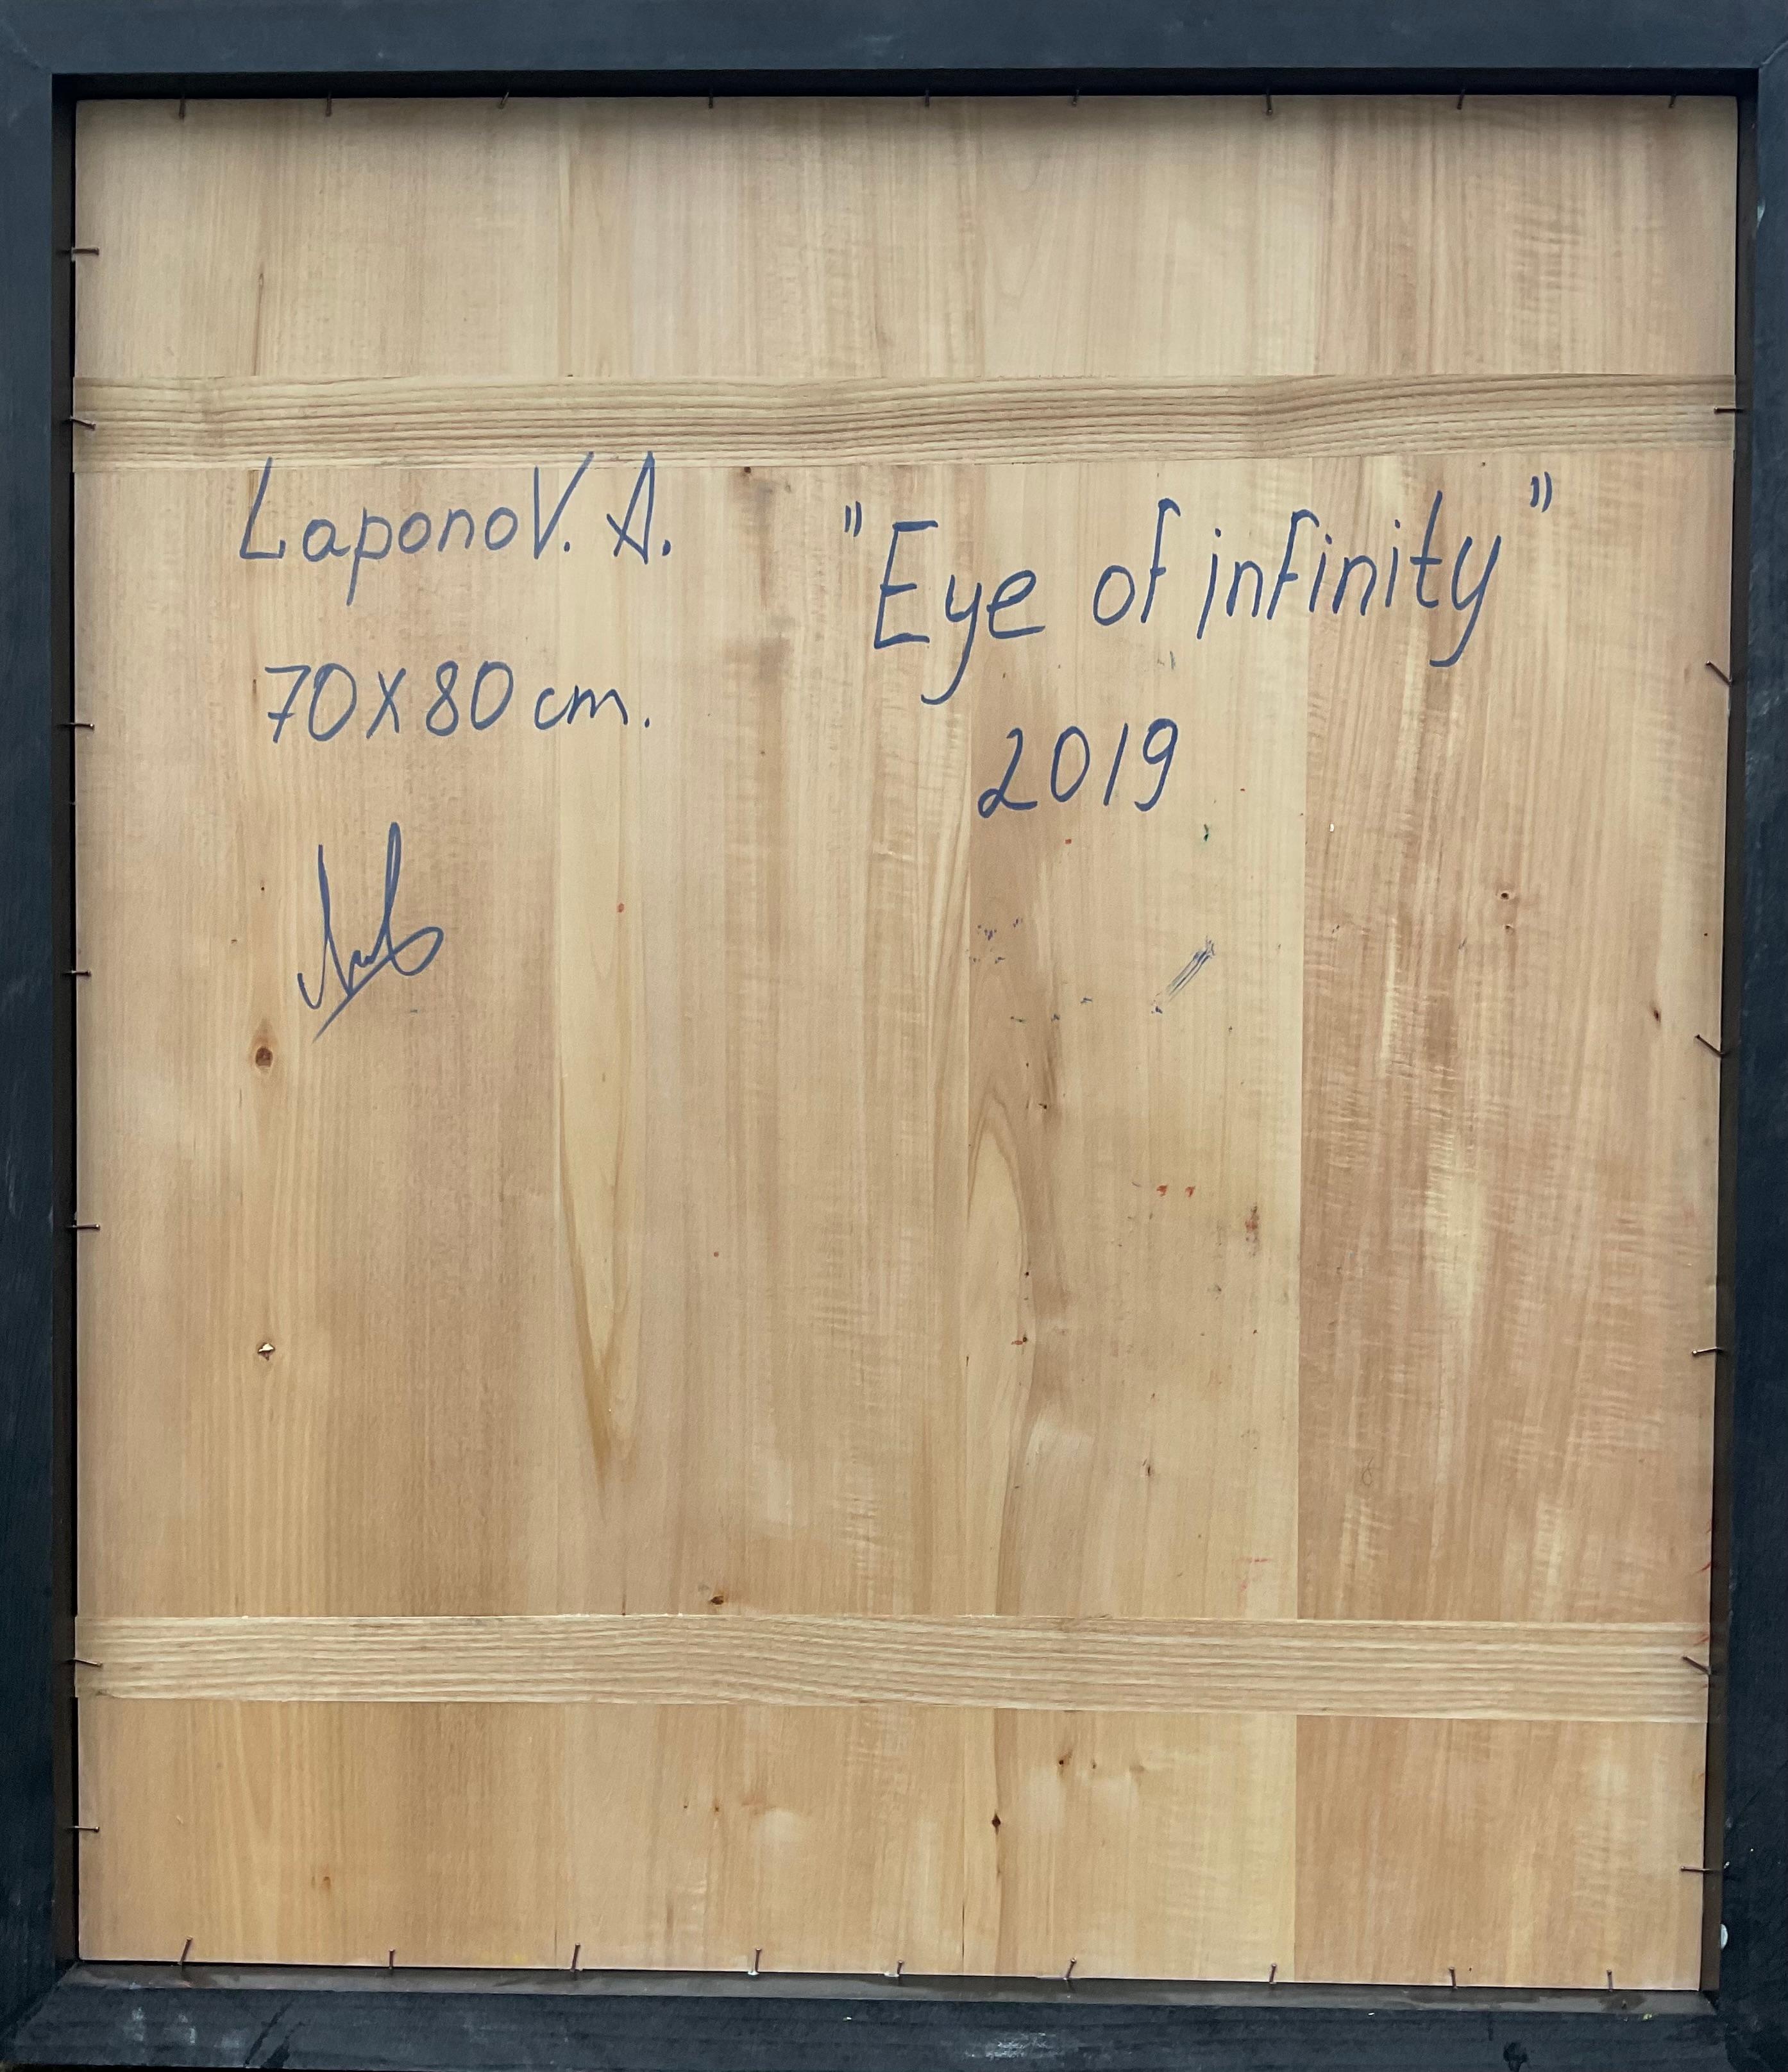 LaponoV. A.
70X80 cm.
"Eye of infinity"
2019